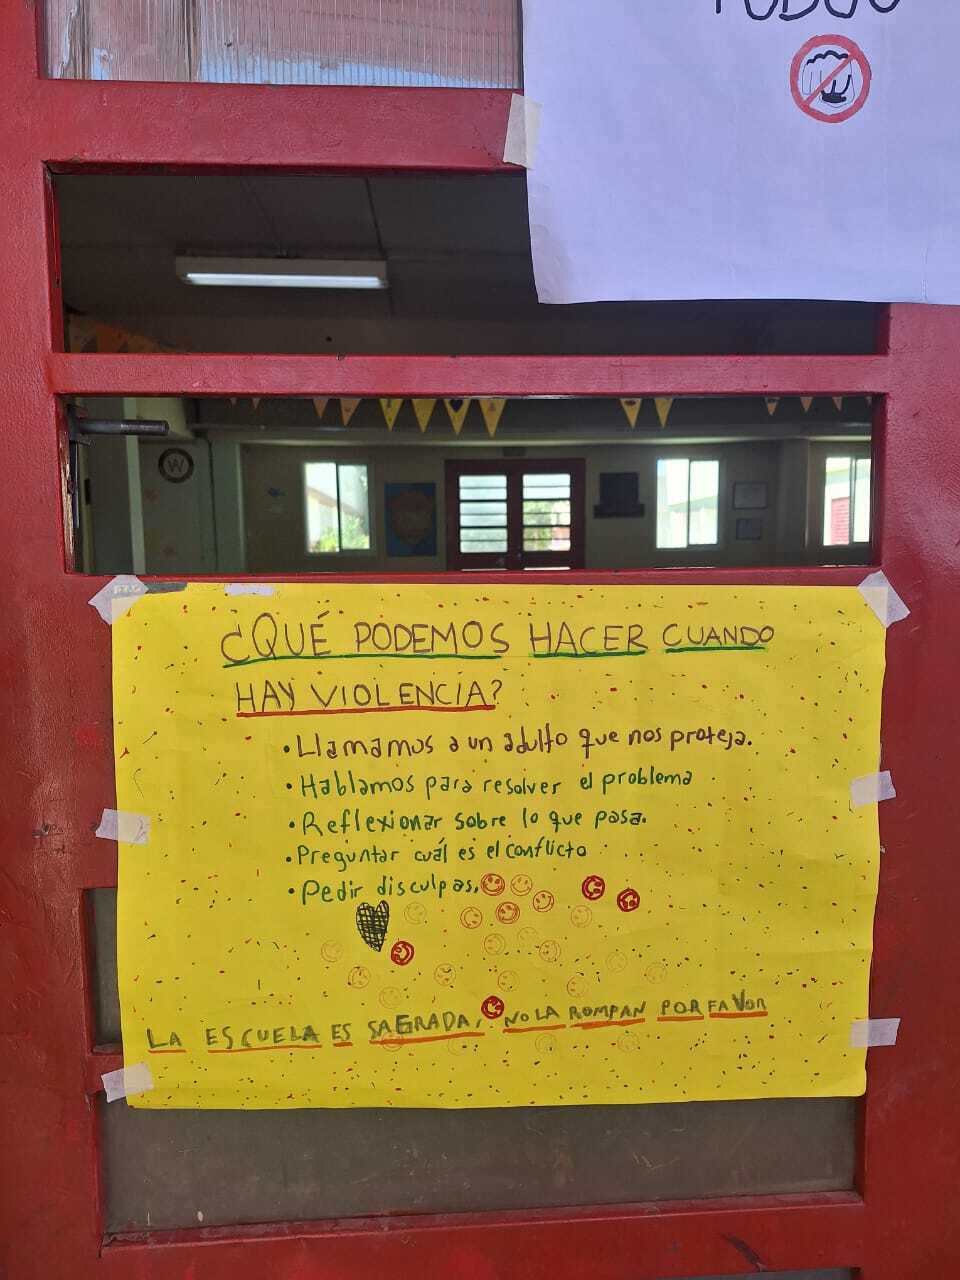 ¿QUÉ PODEMOS HACER CUANDO
HAY VIOLENCIA?
• Llamamos a un adulto que nos proteja.
• Hablamos para resolver el problema
• Reflexionar sobre lo que pasa.
• Preguntar cuál es el conflicto
• Pedir disculpas.
LA ESCUELA ES SAGRADA, NO LA ROMPAN POR FAVOR
W